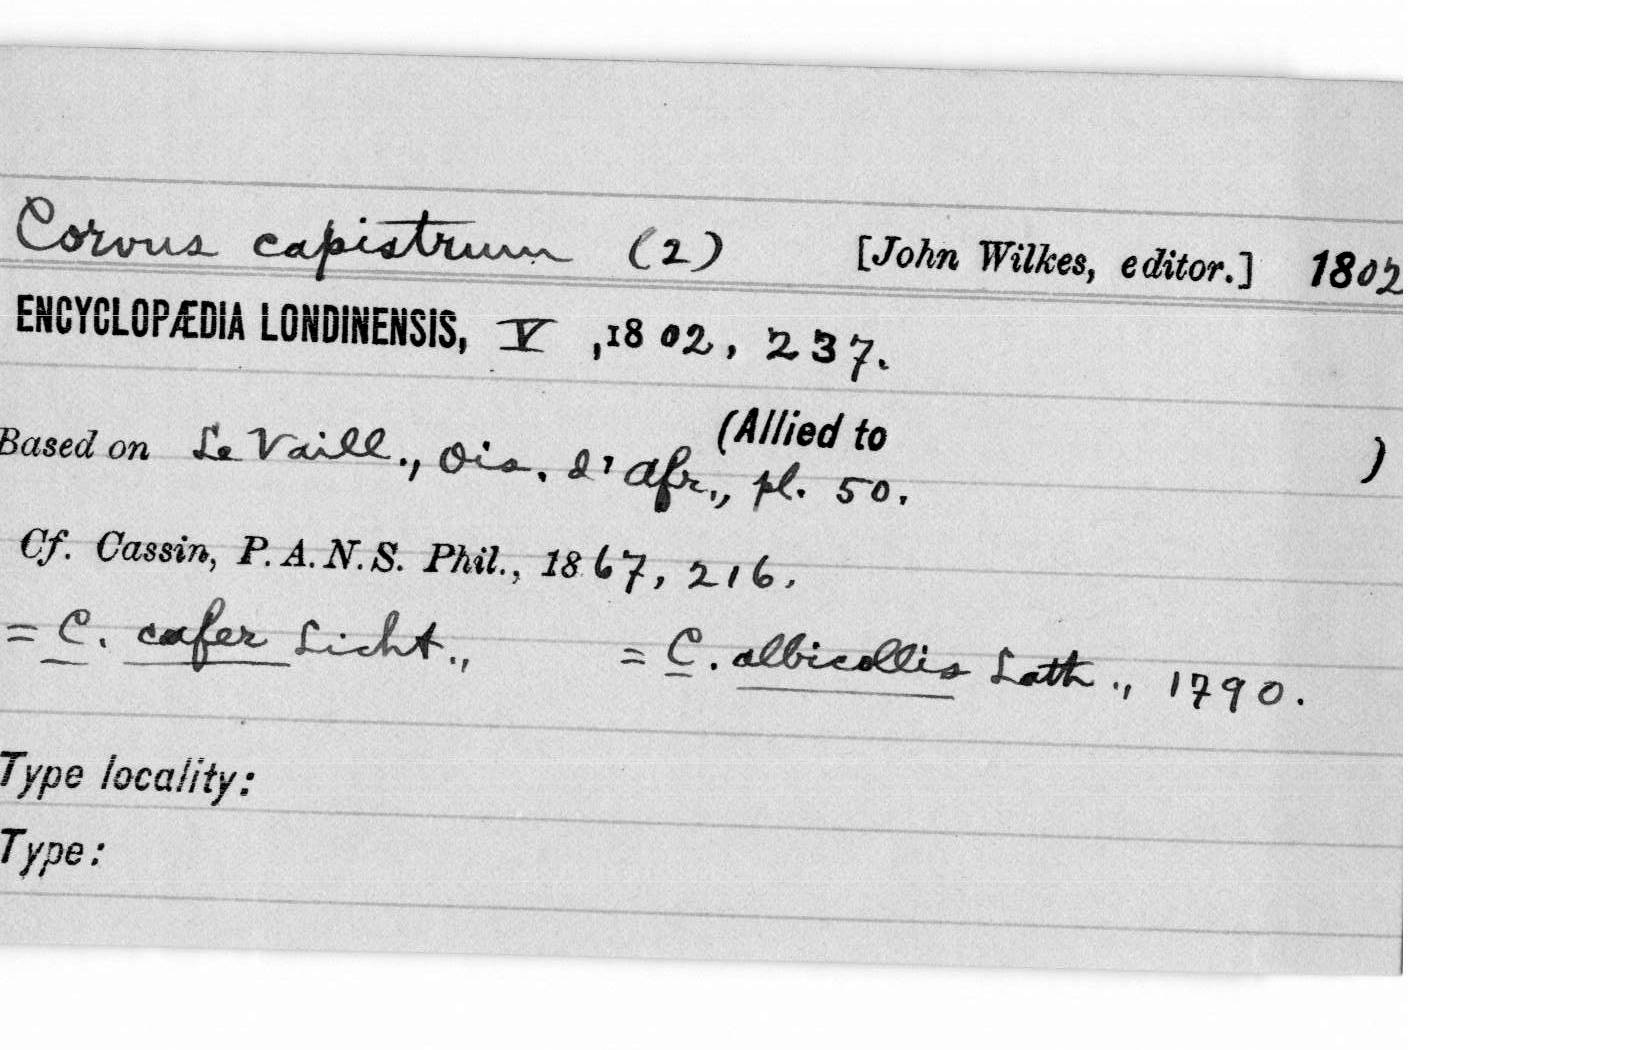 Corvus capistrum (2) [John Wilkes, editor.] 1802
ENCYCLOPÆDIA LONDINENSIS, V, 1802, 237.
(Allied to )
Based on Le Vaill., Ois. d'Afr., pl. 50.
Cf. Cassin, P. A. N. S. Phil., 1867, 216.
= C. cafer Licht., = C. albicollis Lath., 1790.
Type locality:
Type: